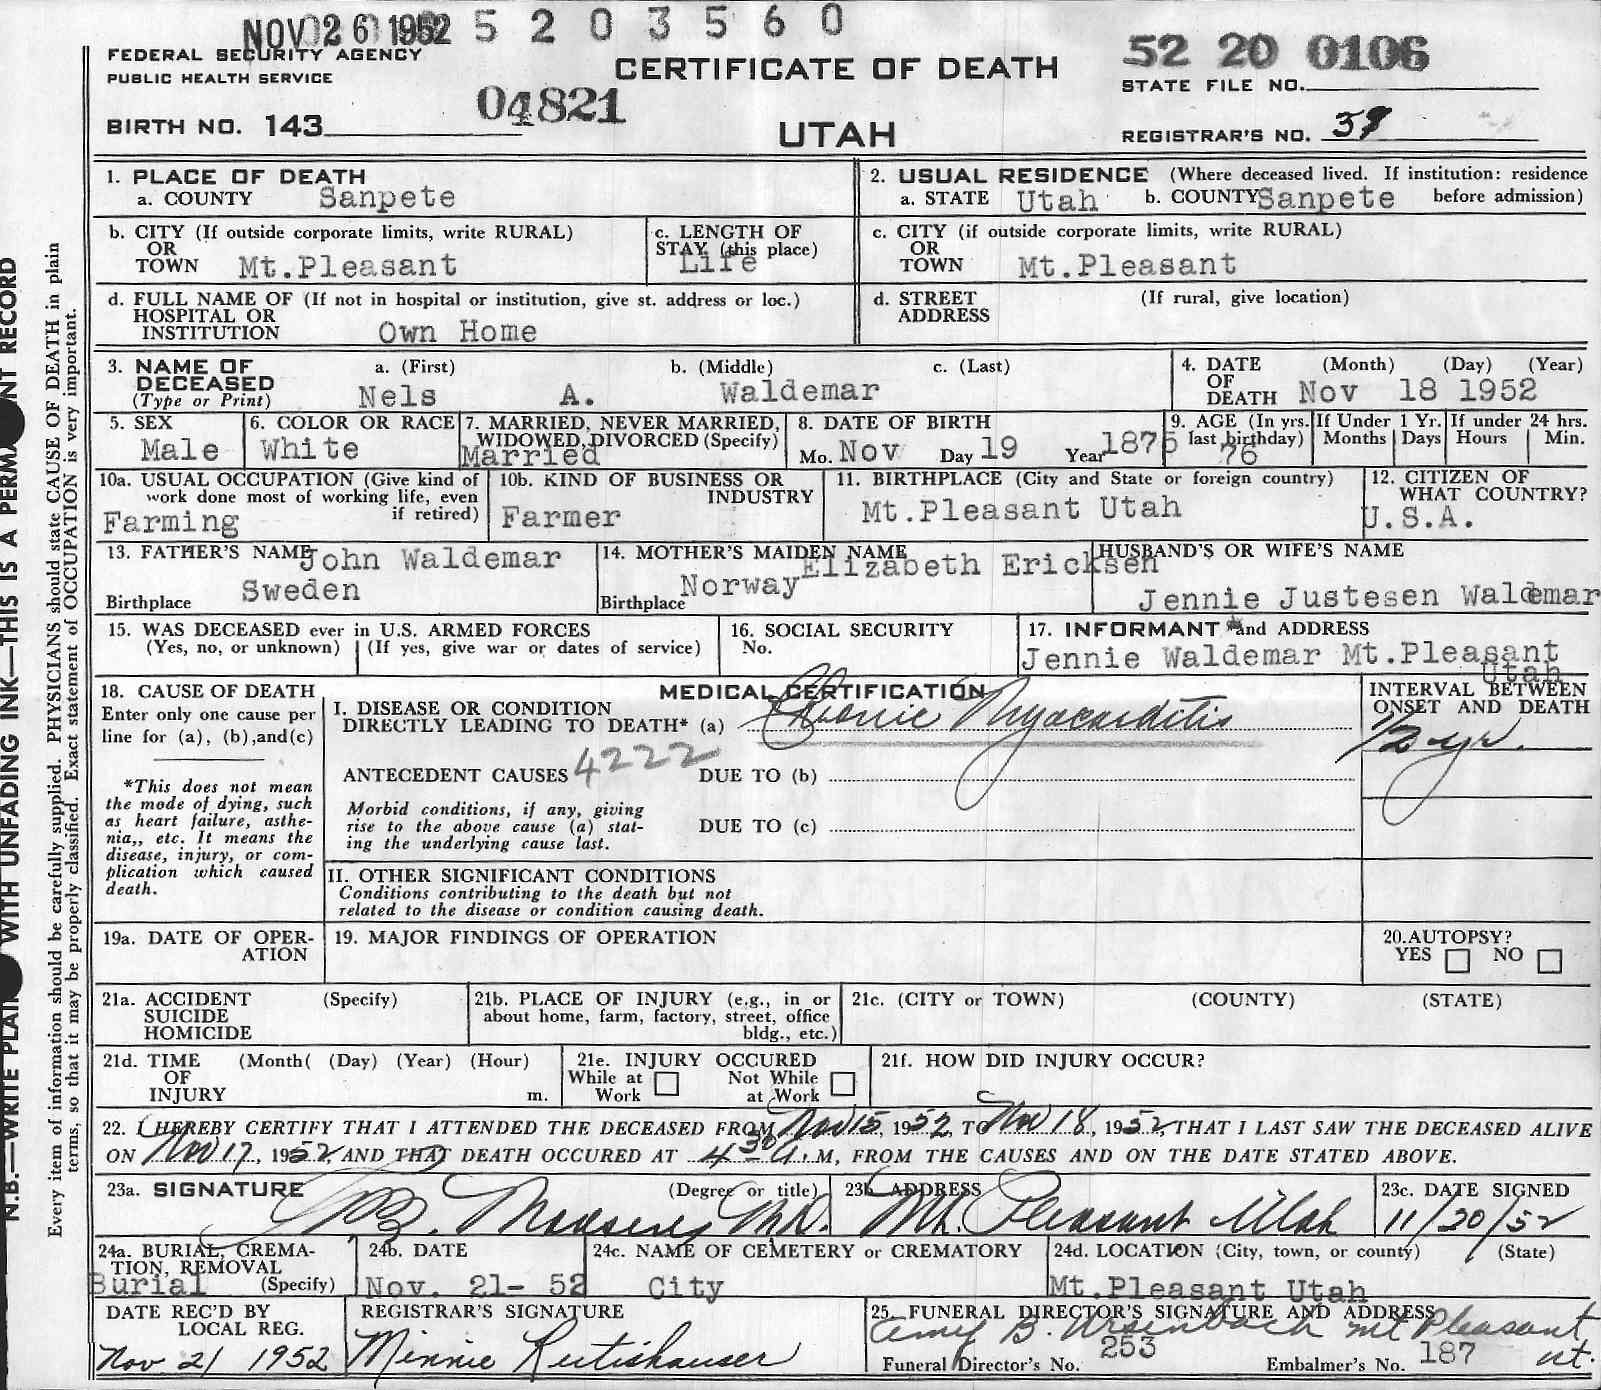 NOV 26 1952 5 2 0 3 5 6 0
FEDERAL SECURITY AGENCY
PUBLIC HEALTH SERVICE
CERTIFICATE OF DEATH
52 20 0106
STATE FILE NO.
04821
BIRTH NO. 143
UTAH
REGISTRAR'S NO. 39
1. PLACE OF DEATH
a. COUNTY Sanpete
2. USUAL RESIDENCE (Where deceased lived. If institution: residence
a. STATE Utah b. COUNTY Sanpete before admission)
b. CITY (If outside corporate limits, write RURAL)
OR
TOWN Mt.Pleasant
c. LENGTH OF
STAY (this place)
Life
c. CITY (if outside corporate limits, write RURAL)
OR
TOWN Mt.Pleasant
d. FULL NAME OF (If not in hospital or institution, give st. address or loc.)
HOSPITAL OR
INSTITUTION Own Home
d. STREET (If rural, give location)
ADDRESS
3. NAME OF a. (First) b. (Middle) c. (Last)
DECEASED
(Type or Print) Nels A. Waldemar
4. DATE (Month) (Day) (Year)
OF
DEATH Nov 18 1952
5. SEX
Male
6. COLOR OR RACE
White
7. MARRIED, NEVER MARRIED,
WIDOWED, DIVORCED (Specify)
Married
8. DATE OF BIRTH
Mo. Nov Day 19 Year 1876
9. AGE (In yrs. last birthday) 76
If Under 1 Yr.
Months Days
If under 24 hrs.
Hours Min.
10a. USUAL OCCUPATION (Give kind of
work done most of working life, even
if retired)
Farming
10b. KIND OF BUSINESS OR
INDUSTRY
Farmer
11. BIRTHPLACE (City and State or foreign country)
Mt.Pleasant Utah
12. CITIZEN OF
WHAT COUNTRY?
U.S.A.
13. FATHER'S NAME John Waldemar
Birthplace Sweden
14. MOTHER'S MAIDEN NAME
Elizabeth Ericksen
Birthplace Norway
HUSBAND'S OR WIFE'S NAME
Jennie Justesen Waldemar
15. WAS DECEASED ever in U.S. ARMED FORCES
(Yes, no, or unknown) (If yes, give war or dates of service)
16. SOCIAL SECURITY
No.
17. INFORMANT and ADDRESS
Jennie Waldemar Mt.Pleasant
Utah
18. CAUSE OF DEATH
Enter only one cause per
line for (a), (b),and(c)
*This does not mean
the mode of dying, such
as heart failure, asthe-
nia,, etc. It means the
disease, injury, or com-
plication which caused
death.
MEDICAL CERTIFICATION
I. DISEASE OR CONDITION
DIRECTLY LEADING TO DEATH* (a) Chronic Myocarditis
4222
ANTECEDENT CAUSES DUE TO (b)
Morbid conditions, if any, giving
rise to the above cause (a) stat-
ing the underlying cause last.
DUE TO (c)
INTERVAL BETWEEN
ONSET AND DEATH
1/2 yr.
II. OTHER SIGNIFICANT CONDITIONS
Conditions contributing to the death but not
related to the disease or condition causing death.
19a. DATE OF OPER-
ATION
19. MAJOR FINDINGS OF OPERATION
20.AUTOPSY?
YES NO
21a. ACCIDENT (Specify)
SUICIDE
HOMICIDE
21b. PLACE OF INJURY (e.g., in or
about home, farm, factory, street, office
bldg., etc.)
21c. (CITY or TOWN) (COUNTY) (STATE)
21d. TIME (Month( (Day) (Year) (Hour)
OF
INJURY m.
21e. INJURY OCCURED
While at Work
Not While at Work
21f. HOW DID INJURY OCCUR?
22. I HEREBY CERTIFY THAT I ATTENDED THE DECEASED FROM Nov 15, 1952, TO Nov 18, 1952, THAT I LAST SAW THE DECEASED ALIVE
ON Nov 17, 1952, AND THAT DEATH OCCURED AT 4 30 A.M, FROM THE CAUSES AND ON THE DATE STATED ABOVE.
23a. SIGNATURE (Degree or title)
Madsen MD.
23b. ADDRESS
Mt. Pleasant Utah
23c. DATE SIGNED
11/20/52
24a. BURIAL, CREMA-
TION, REMOVAL
Burial (Specify)
24b. DATE
Nov. 21- 52
24c. NAME OF CEMETERY or CREMATORY
City
24d. LOCATION (City, town, or county) (State)
Mt.Pleasant Utah
DATE REC'D BY
LOCAL REG.
Nov 21 1952
REGISTRAR'S SIGNATURE
Minnie Rutishauser
25. FUNERAL DIRECTOR'S SIGNATURE AND ADDRESS
B. Ursenbach Mt Pleasant
Ut.
Funeral Director's No. 253 Embalmer's No. 187
N.B.—WRITE PLAI WITH UNFADING INK—THIS IS A PERMA NT RECORD
Every item of information should be carefully supplied. PHYSICIANS should state CAUSE OF DEATH in plain
terms, so that it may be properly classified. Exact statement of OCCUPATION is very important.